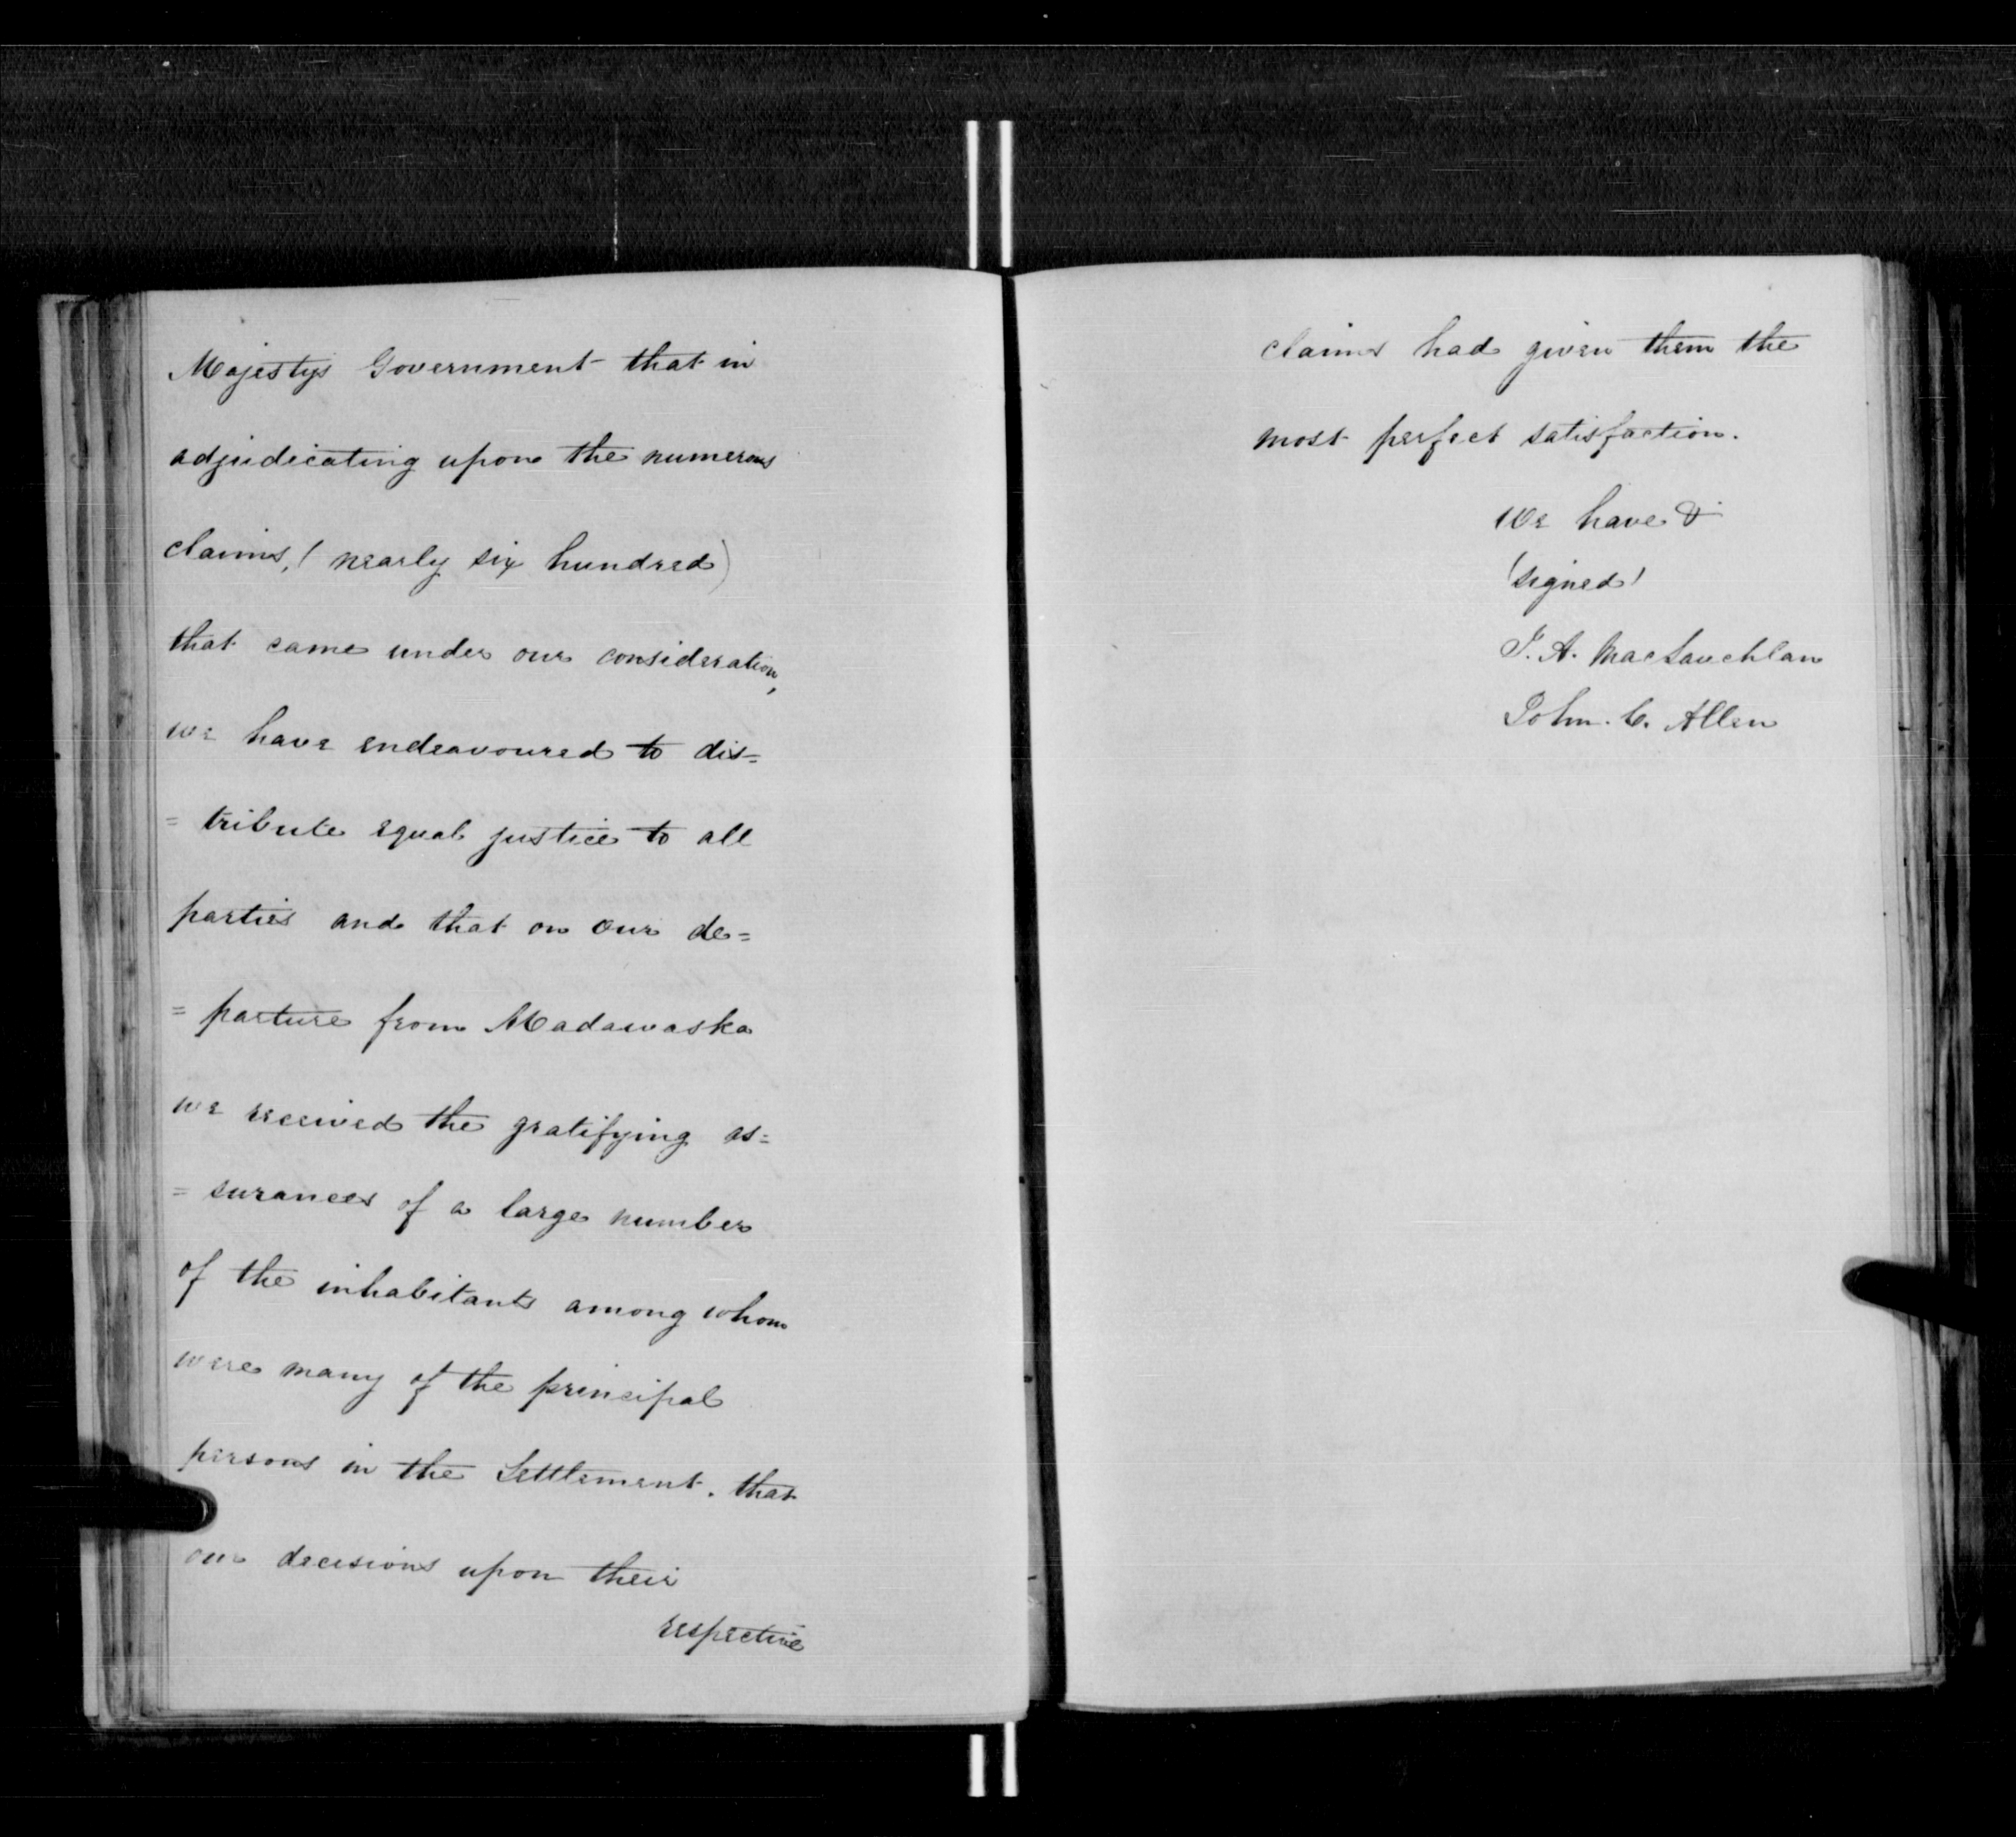 Majestys Government that in
adjudicating upon the numerous
claims, (nearly six hundred)
that came under our consideration,
we have endeavoured to dis=
= tribute equal justice to all
parties and that on our de=
= parture from Madawaska
we received the gratifying as=
= surances of a large number
of the inhabitants among whom
were many of the principal
persons in the Settlement. that
our decisions upon their
respective
claims had given them the
most perfect satisfaction.
We have &
(signed)
J. A. MacLauchlan
John. C. Allen